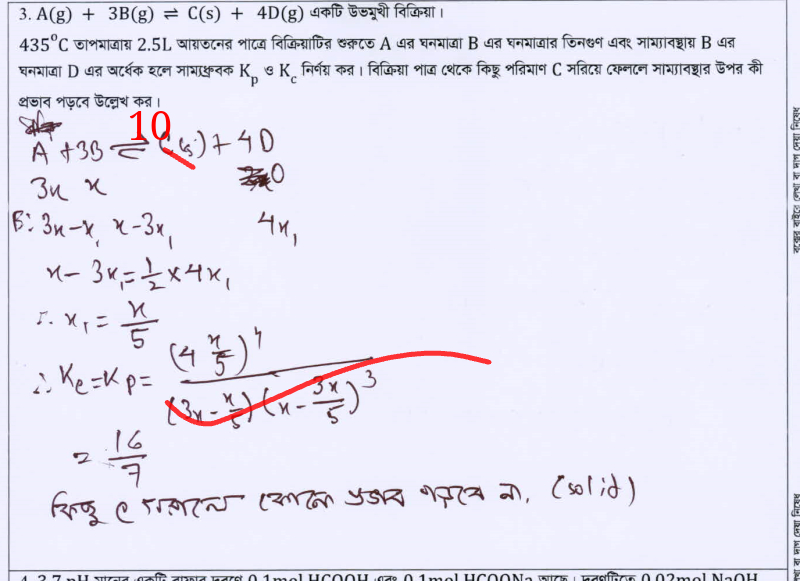 3. A(g) + 3B(g) ⇌ C(s) + 4D(g) একটি উভমুখী বিক্রিয়া।
435°C তাপমাত্রায় 2.5L আয়তনের পাত্রে বিক্রিয়াটির শুরুতে A এর ঘনমাত্রা B এর ঘনমাত্রার তিনগুণ এবং সাম্যাবস্থায় B এর
ঘনমাত্রা D এর অর্ধেক হলে সাম্যধ্রুবক Kp ও Kc নির্ণয় কর। বিক্রিয়া পাত্র থেকে কিছু পরিমাণ C সরিয়ে ফেললে সাম্যাবস্থার উপর কী
প্রভাব পড়বে উল্লেখ কর।
10
A + 3B ⇌ C(s) + 4D
3x x 0
3x-x₁ x-3x₁ 4x₁
x - 3x₁ = 1/2 × 4x₁
∴ x₁ = x/5
∴ Kc = Kp = (4 x/5)⁴ / (3x - x/5) (x - 3x/5)³
= 16/7
কিছু C সরালে কোনো প্রভাব পড়বে না. (solid)
4. 3.7 pH মানের একটি বাফার দ্রবণে 0.1mol HCOOH এবং 0.1mol HCOONa আছে। দ্রবণটিতে 0.02mol NaOH
বক্সের বাইরে লেখা বা দাগ দেয়া নিষেধ
বা দাগ দেয়া নিষেধ